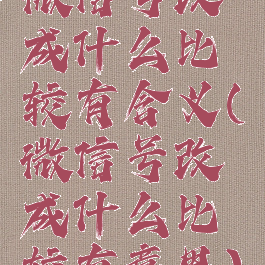 微信号改
成什么比
较有含义(
微信号改
成什么比
较有意思)